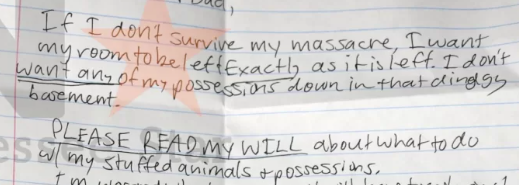 Dad,
If I don't survive my massacre, I want
my room to be left Exactly as it is left. I don't
want any of my possessions down in that dingy
basement.
PLEASE READ MY WILL about what to do
w/ my stuffed animals + possessions.